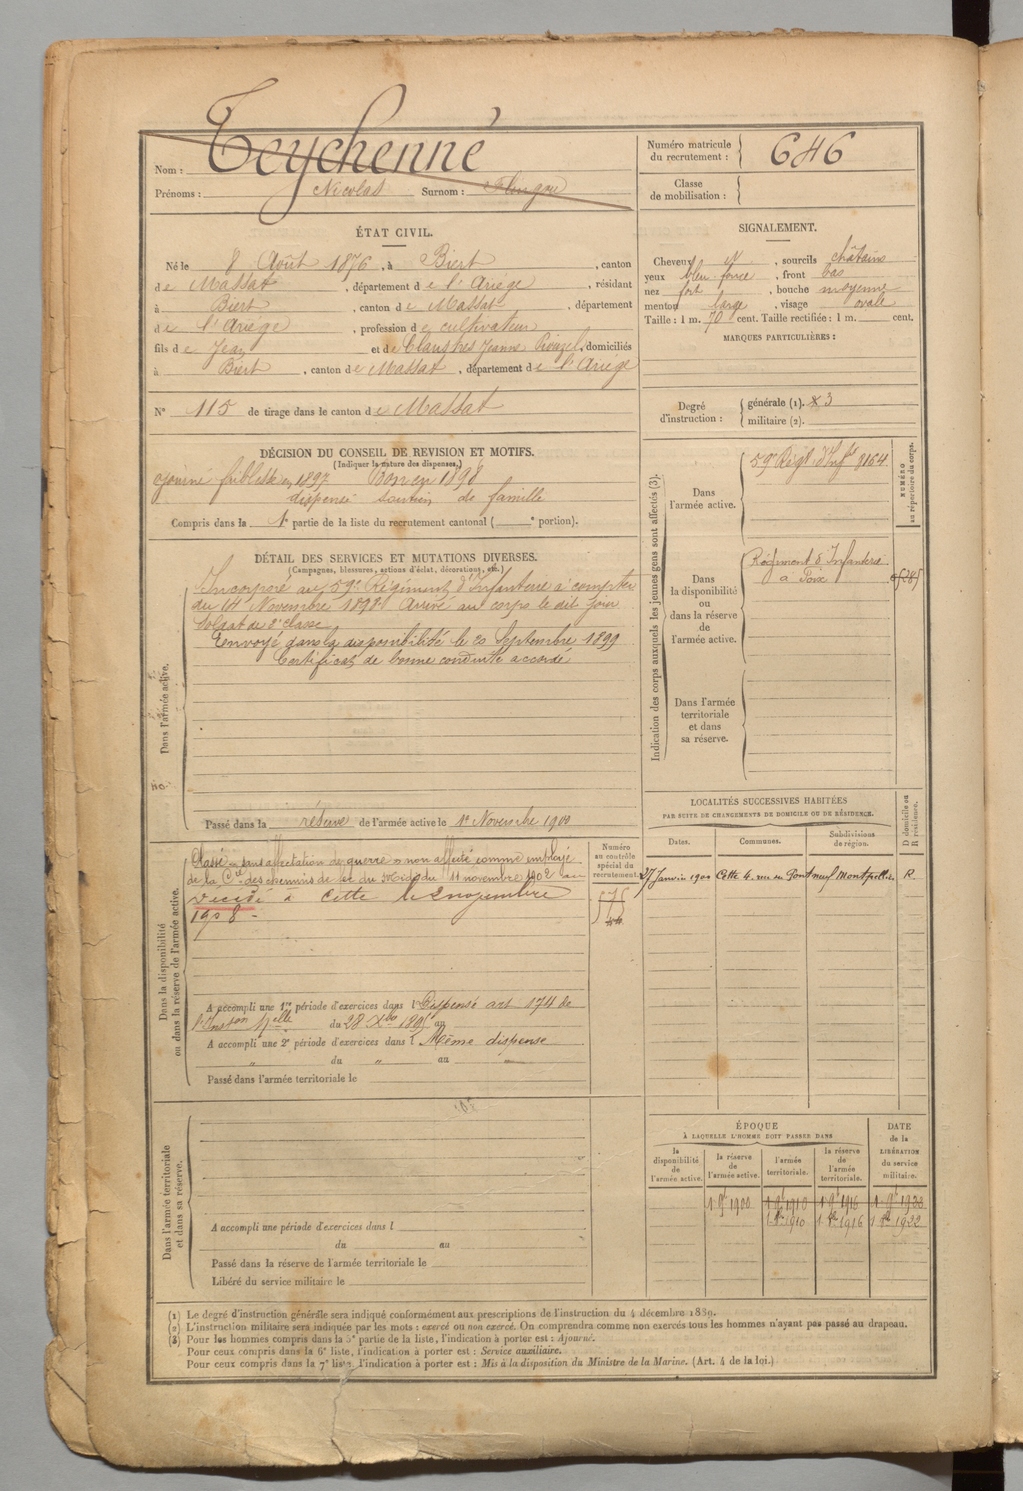 Nom : Teychenné
Prénoms : Nicolas Surnom :
Numéro matricule
du recrutement : 646
Classe
de mobilisation :
ÉTAT CIVIL.
Né le 8 Août 1876, à Biert, canton
de Massat, département de l'Ariège, résidant
à Biert, canton de Massat, département
de l'Ariège, profession de cultivateur
fils de Jean et de Claustres Jeanne, domiciliés
à Biert, canton de Massat, département de l'Ariège
N° 115 de tirage dans le canton de Massat
SIGNALEMENT.
Cheveux N, sourcils châtains
yeux bleu foncé, front bas
nez fort, bouche moyenne
menton large, visage ovale
Taille : 1 m. 70 cent. Taille rectifiée : 1 m. cent.
MARQUES PARTICULIÈRES :
Degré
d'instruction :
générale (1). 3
militaire (2).
DÉCISION DU CONSEIL DE REVISION ET MOTIFS.
(Indiquer la nature des dispenses.)
ajourné faiblesse en 1897 Bon en 1898
dispensé soutien de famille
Compris dans la 1e partie de la liste du recrutement cantonal ( e portion).
DÉTAIL DES SERVICES ET MUTATIONS DIVERSES.
(Campagnes, blessures, actions d'éclat, décorations, etc.)
Dans l'armée active.
Incorporé au 59e Régiment d'Infanterie à compter
du 14 Novembre 1898 Arrivé au corps le dit jour
Soldat de 2e classe
Envoyé dans la disponibilité le 20 Septembre 1899
Certificat de bonne conduite accordé
Passé dans la réserve de l'armée active le 1er Novembre 1900
Indication des corps auxquels les jeunes gens sont affectés (3).
NUMÉRO
au répertoire du corps.
Dans
l'armée active.
59e Régt d'Infie 8164
Dans
la disponibilité
ou
dans la réserve
de
l'armée active.
Régiment d'Infanterie
à Foix
Dans l'armée
territoriale
et dans
sa réserve.
Dans la disponibilité
ou dans la réserve de l'armée active.
Classé « sans affectation de guerre » non affecté comme employé
de la Cie des chemins de fer du Midi du 11 novembre 1902 au
Décédé à Cette le 2 novembre
1908 -
Numéro
au contrôle
spécial du
recrutement.
575
A accompli une 1re période d'exercices dans l Dispensé art 174 de
l'Inston Melle du 28 Xbre 1895 au
A accompli une 2e période d'exercices dans l Même dispense
" du " au "
Passé dans l'armée territoriale le
LOCALITÉS SUCCESSIVES HABITÉES
PAR SUITE DE CHANGEMENTS DE DOMICILE OU DE RÉSIDENCE.
D domicile ou
R résidence.
Dates. Communes. Subdivisions
de région.
27 Janvier 1900 Cette 4, rue du Pont neuf Montpellier R.
Dans l'armée territoriale
et dans sa réserve.
A accompli une période d'exercices dans l
du au
Passé dans la réserve de l'armée territoriale le
Libéré du service militaire le
ÉPOQUE
À LAQUELLE L'HOMME DOIT PASSER DANS
DATE
de la
LIBÉRATION
du service
militaire.
la
disponibilité
de
l'armée active.
la réserve
de
l'armée active.
l'armée
territoriale.
la réserve
de
l'armée
territoriale.
1 9e 1900 1 9e 1910 1 9e 1916
1910 1916 1922
(1) Le degré d'instruction générale sera indiqué conformément aux prescriptions de l'instruction du 4 décembre 1889.
(2) L'instruction militaire sera indiquée par les mots : exercé ou non exercé. On comprendra comme non exercés tous les hommes n'ayant pas passé au drapeau.
(3) Pour les hommes compris dans la 5e partie de la liste, l'indication à porter est : Ajourné.
Pour ceux compris dans la 6e liste, l'indication à porter est : Service auxiliaire.
Pour ceux compris dans la 7e liste, l'indication à porter est : Mis à la disposition du Ministre de la Marine. (Art. 4 de la loi.)